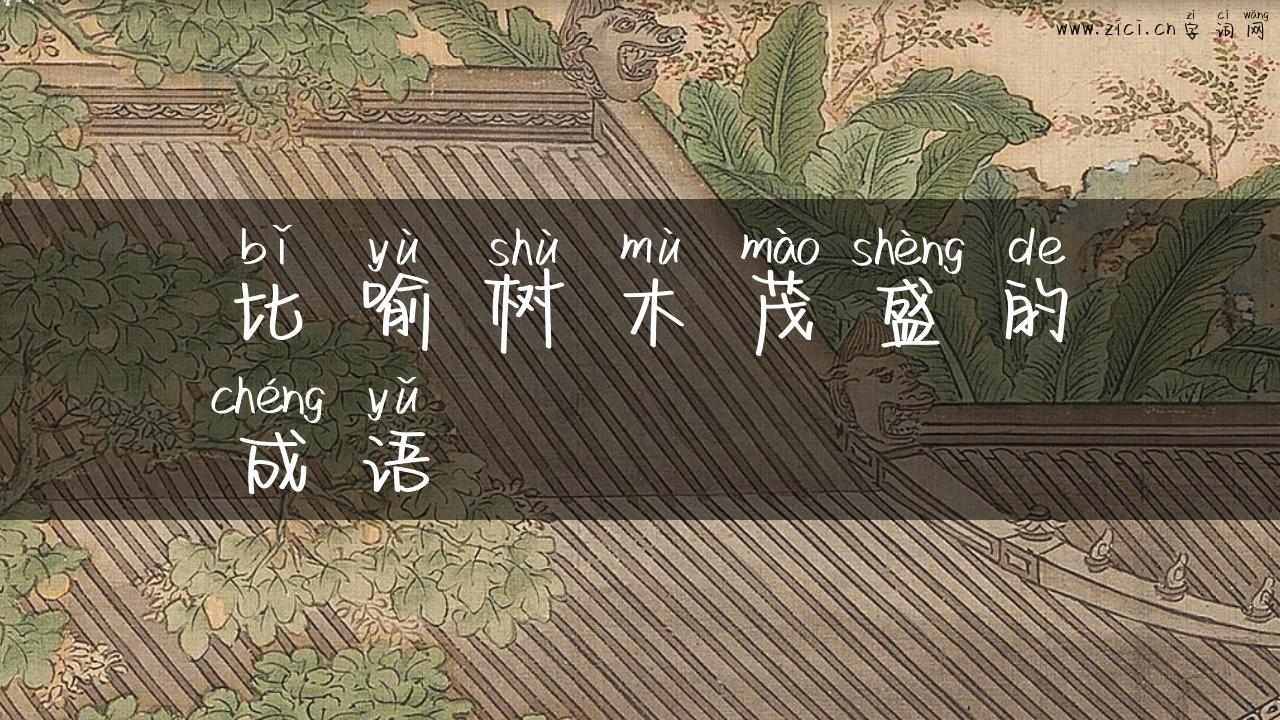 zì cí wǎng
www.zici.cn 字 词 网
bǐ yù shù mù mào shèng de
比 喻 树 木 茂 盛 的
chéng yǔ
成 语